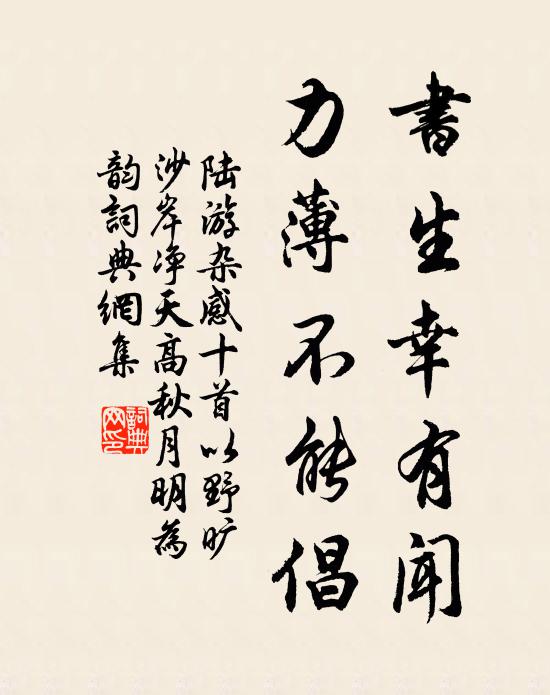 書生幸有聞
力薄不能倡
陆游杂感十首以野旷
沙岸净天高秋月明為
韵詞典網集
詞典網印